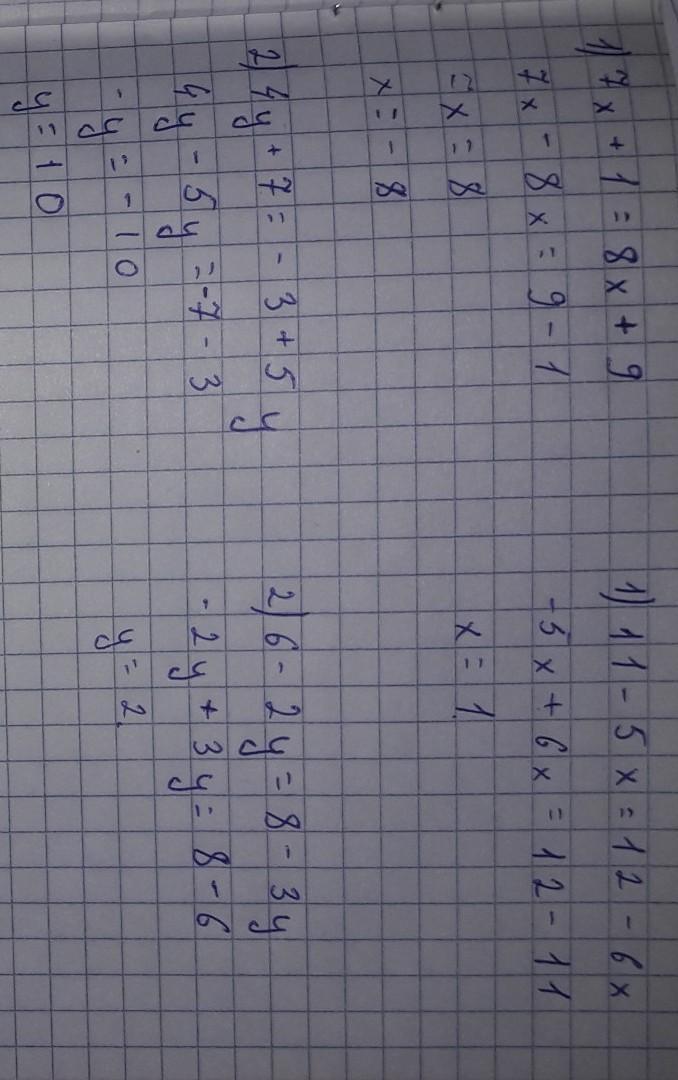 1) 7x + 1 = 8x + 9
7x - 8x = 9 - 1
- x = 8
x = - 8
2) 4y + 7 = - 3 + 5y
4y - 5y = -7 - 3
- y = - 10
y = 10
1) 11 - 5x = 12 - 6x
-5x + 6x = 12 - 11
x = 1
2) 6 - 2y = 8 - 3y
- 2y + 3y = 8 - 6
y = 2